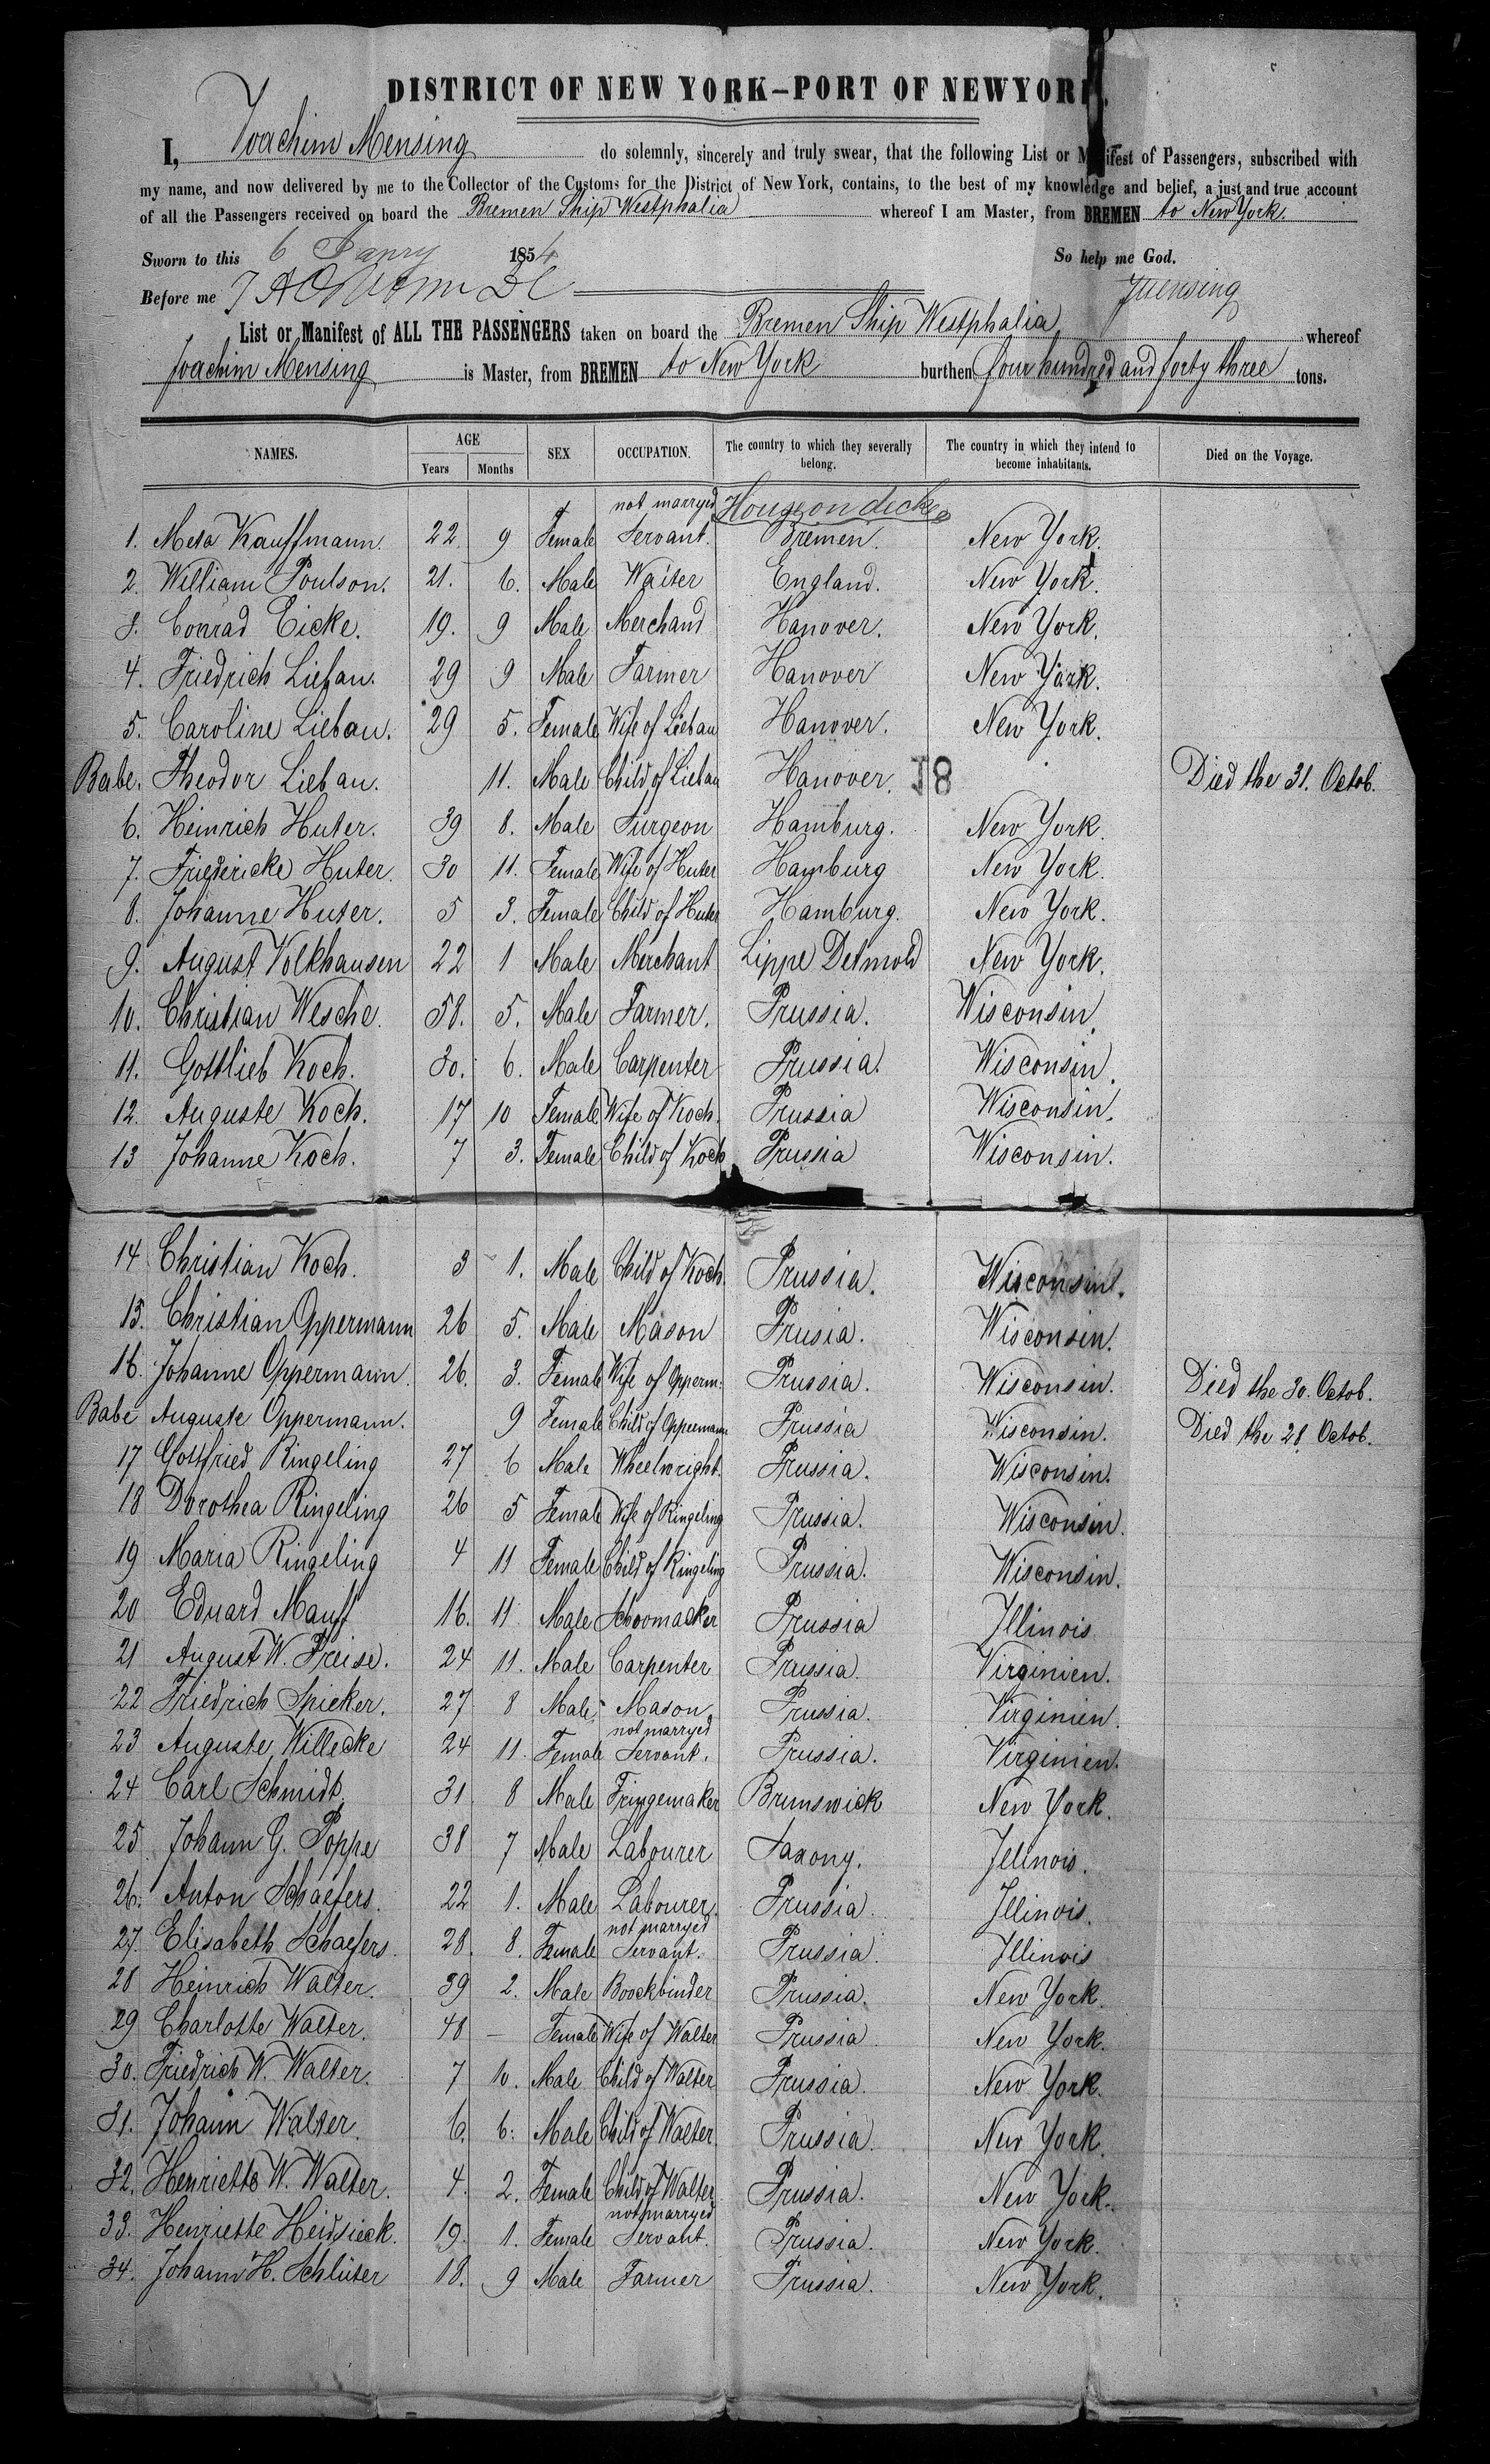 DISTRICT OF NEW YORK–PORT OF NEWYORK.
I, Joachim Mensing do solemnly, sincerely and truly swear, that the following List or Manifest of Passengers, subscribed with
my name, and now delivered by me to the Collector of the Customs for the District of New York, contains, to the best of my knowledge and belief, a just and true account
of all the Passengers received on board the Bremen Ship Westphalia whereof I am Master, from BREMEN to New York.
Sworn to this 6 Janry 1854 So help me God.
Before me JMensing
List or Manifest of ALL THE PASSENGERS taken on board the Bremen Ship Westphalia whereof
Joachim Mensing is Master, from BREMEN to New York burthen four hundred and forty three tons.
NAMES. AGE Years Months SEX OCCUPATION. The country to which they severally belong. The country in which they intend to become inhabitants. Died on the Voyage.
not marryed House on decke
1. Meta Kauffmann. 22 9 Female Servant. Bremen. New York.
2. William Poulson. 21. 6. Male Waiter England. New York.
3. Conrad Eicke. 19. 9 Male Merchand Hanover. New York.
4. Friedrich Liebau. 29 9 Male Farmer Hanover New York.
5. Caroline Liebau. 29 5. Female Wife of Liebau Hanover. New York.
Babe. Theodor Liebau. 11. Male Child of Liebau Hanover. 18 Died the 31. Octob.
6. Heinrich Huter. 39 8. Male Surgeon Hamburg. New York.
7. Friedericke Huter. 30 11. Female Wife of Huter Hamburg New York.
8. Johanne Huter. 5 3. Female Child of Huter Hamburg. New York.
9. August Volkhausen 22 1 Male Merchant Lippe Detmold New York.
10. Christian Wesche. 58. 5. Male Farmer. Prussia. Wisconsin.
11. Gottlieb Koch. 30. 6. Male Carpenter Prussia. Wisconsin.
12. Auguste Koch. 17 10 Female Wife of Koch. Prussia Wisconsin.
13 Johanne Koch. 7 3. Female Child of Koch Prussia Wisconsin.
14 Christian Koch. 3 1. Male Child of Koch. Prussia. Wisconsin.
15. Christian Oppermann 26 5. Male Mason Prusia. Wisconsin.
16. Johanne Oppermann. 26. 3. Female Wife of Opperm. Prussia. Wisconsin. Died the 30. Octob.
Babe Auguste Oppermann. 9 Female Child of Oppermann Prussia Wisconsin. Died the 28. Octob.
17 Gottfried Ringeling 27 6 Male Wheelwright. Prussia. Wisconsin.
18 Dorothea Ringeling 26 5 Female Wife of Ringeling Prussia. Wisconsin.
19 Maria Ringeling 4 11 Female Child of Ringeling Prussia. Wisconsin.
20 Eduard Mauff 16. 11 Male Schoomacker Prussia Illinois
21 August W. Freise. 24 11. Male Carpenter Prussia. Virginien.
22 Friedrich Spieker. 27 8 Male Mason. Prussia. Virginien.
not marryed
23 Auguste Willecke 24 11. Female Servant. Prussia. Virginien.
24 Carl Schmidt. 31 8 Male Fringemaker Brunswick New York.
25 Johann G. Poppe 38 7 Male Labourer Saxony. Illinois.
26. Anton Schaefers. 22 1. Male Labourer. Prussia. Illinois.
not marryed
27. Elisabeth Schaefers. 28. 8. Female Servant. Prussia. Illinois
28 Heinrich Walter. 39 2. Male Boockbinder Prussia. New York.
29 Charlotte Walter. 48 – Female Wife of Walter Prussia New York.
30. Friedrich W. Walter. 7 10. Male Child of Walter Prussia. New York.
31. Johann Walter. 6. 6. Male Child of Walter Prussia. New York.
32. Henriette W. Walter. 4. 2. Female Child of Walter Prussia. New York.
not marryed
33. Henriette Heidsieck. 19. 1. Female Servant. Prussia. New York.
34. Johann H. Schlüter 18. 9 Male Farmer Prussia. New York.